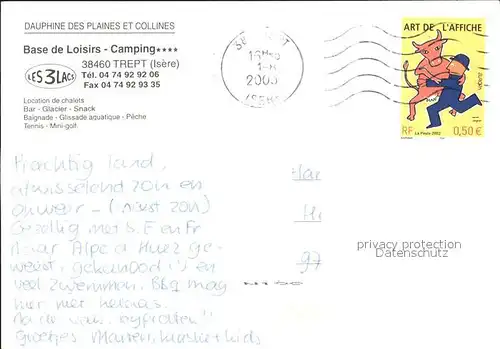 DAUPHINE DES PLAINES ET COLLINES
Base de Loisirs - Camping****
LES 3 LACS
38460 TREPT (Isère)
Tél. 04 74 92 92 06
Fax 04 74 92 93 35
Location de chalets
Bar - Glacier - Snack
Baignade - Glissade aquatique - Pêche
Tennis - Mini-golf.
ART DE L'AFFICHE
RF La Poste 2002 0,50 €
Prachtig land,
afwisselend zon en
onweer - (meest zon)
Gezellig met S. E en Fr
naar Alpe d Huez ge-
weest, en
veel zwemmen. BBQ mag
hier niet helaas.
Groetjes Maureen,
privacy protection
Datenschutz
97